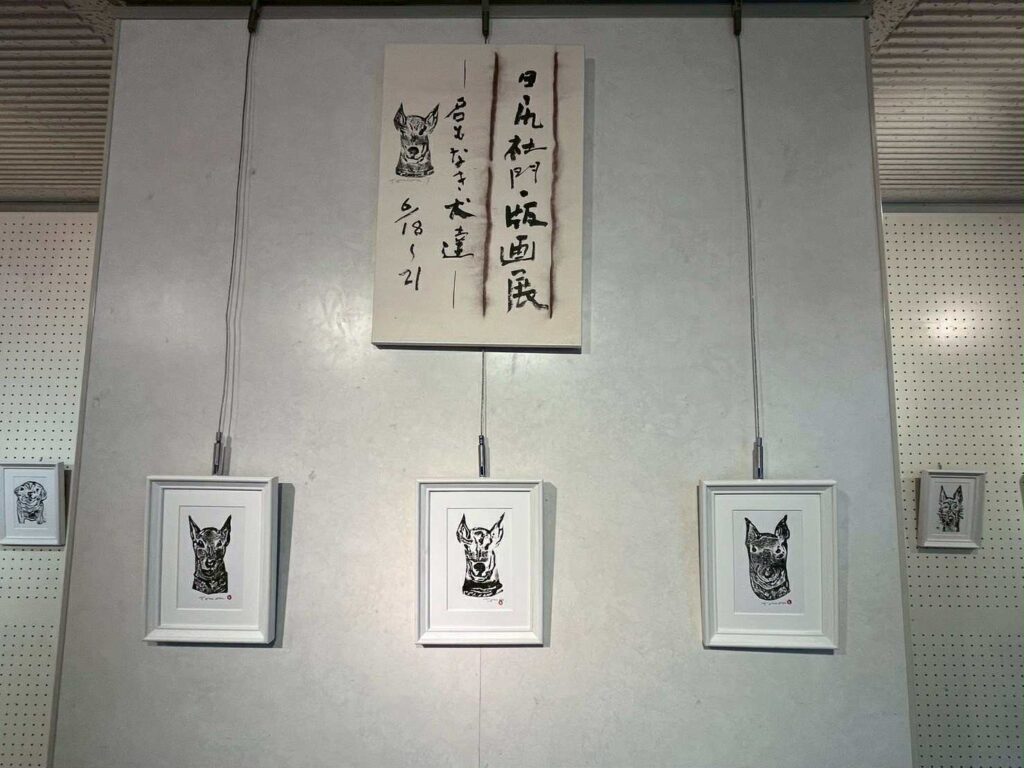 田尻杜門・版画展
—名もなき犬達—
6/18〜21